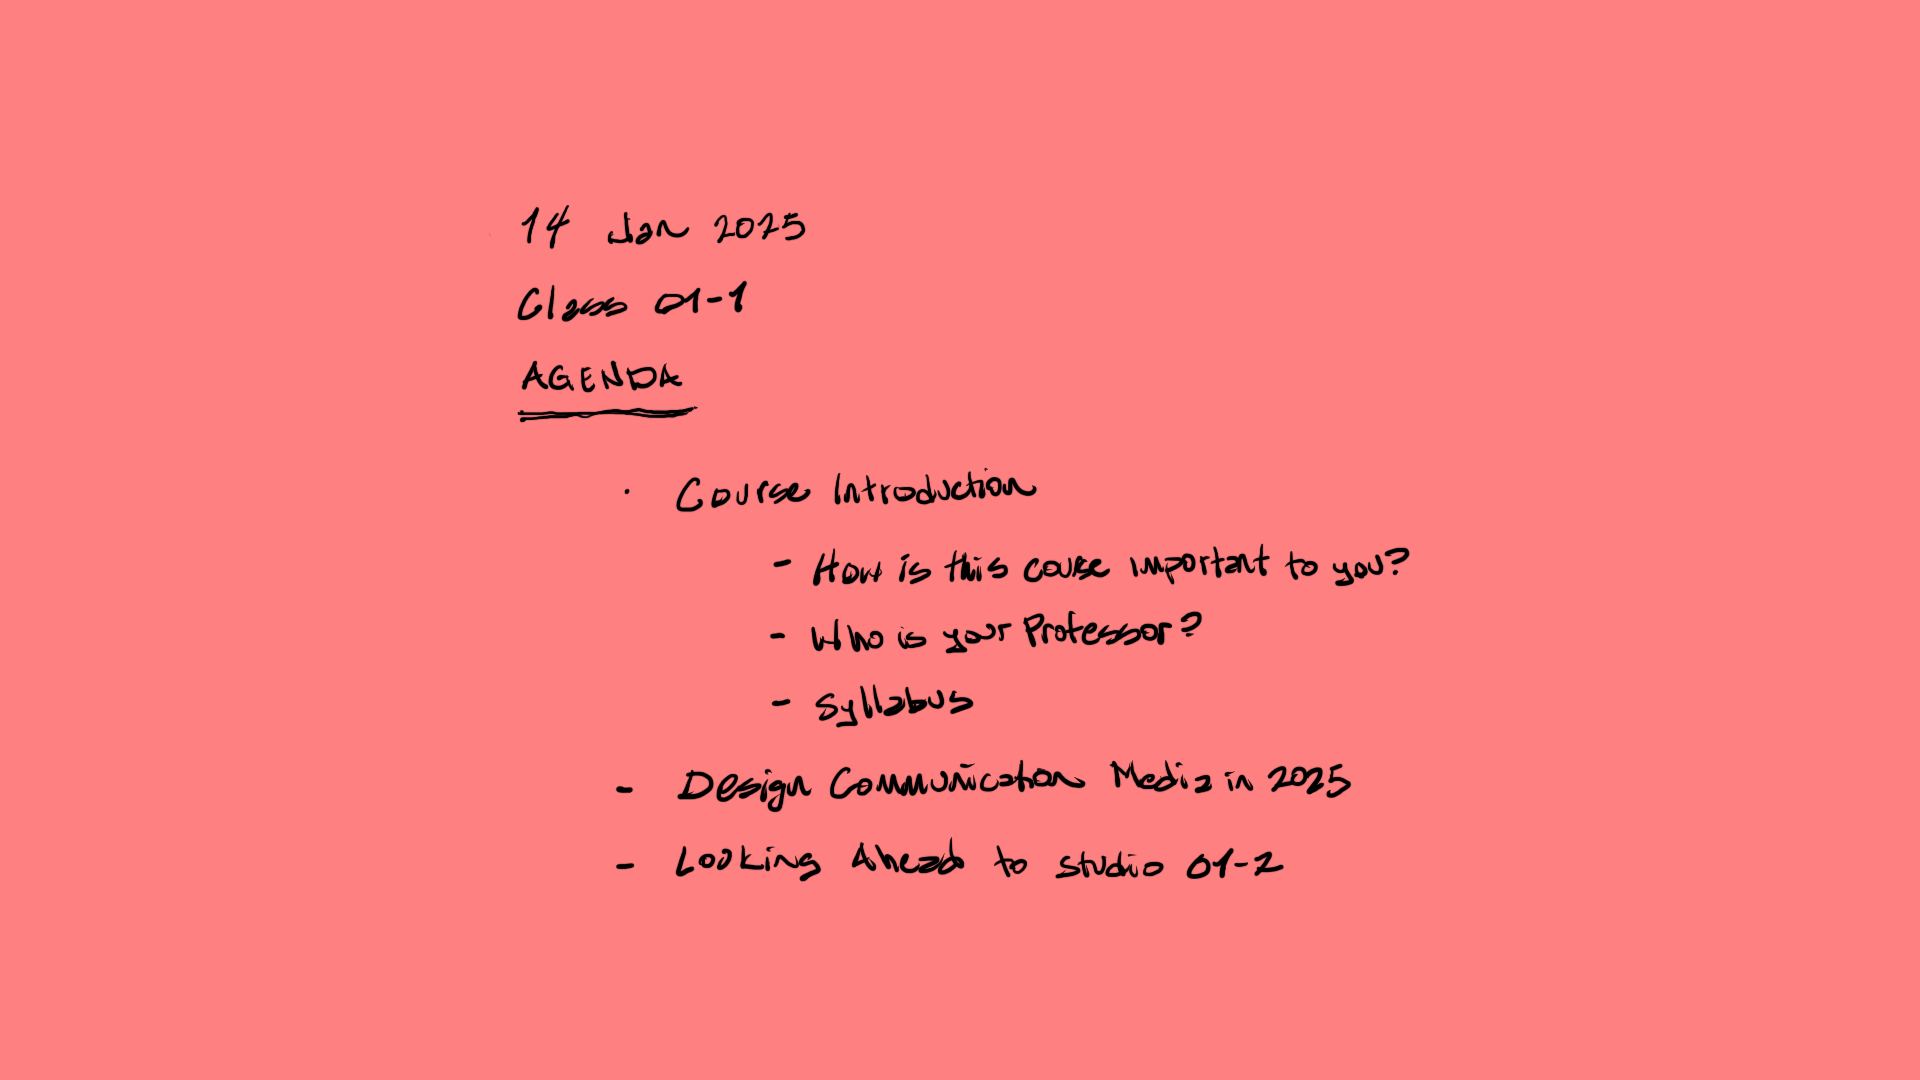 14 Jan 2025
Class 01-1
AGENDA
· Course Introduction
- How is this course important to you?
- Who is your Professor?
- Syllabus
- Design Communication Media in 2025
- Looking Ahead to studio 01-2